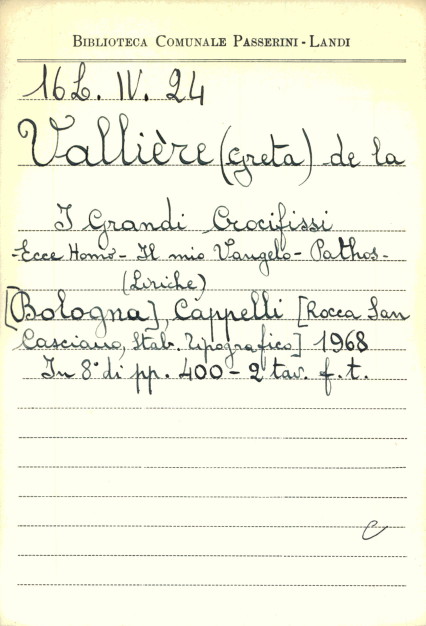 BIBLIOTECA COMUNALE PASSERINI - LANDI
16L. IV. 24
Vallière (Greta) de la
I Grandi Crocifissi
-Ecce Homo - Il mio Vangelo - Pathos-
(Liriche)
[Bologna], Cappelli [Rocca San
Casciano, Stab. Tipografico] 1968
In 8° di pp. 400 - 2 tav. f. t.
C